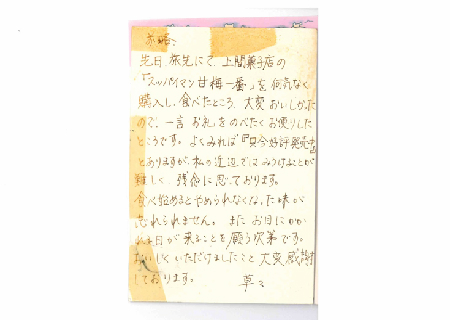 前略、
先日、旅先にて、上間菓子店の
『スッパイマン甘梅一番』を何気なく
購入し、食べたところ、大変おいしかった
ので、一言お礼をのべたくお便りした
ところです。よくみれば『只今好評発売中』
とありますが、私の近辺ではみつけることが
難しく、残念に思っております。
食べ始めるとやめられなくなった味が
忘れられません。またお目にかか
れる日が来ることを願う次第です。
おいしくいただけましたこと大変感謝
しております。 草々